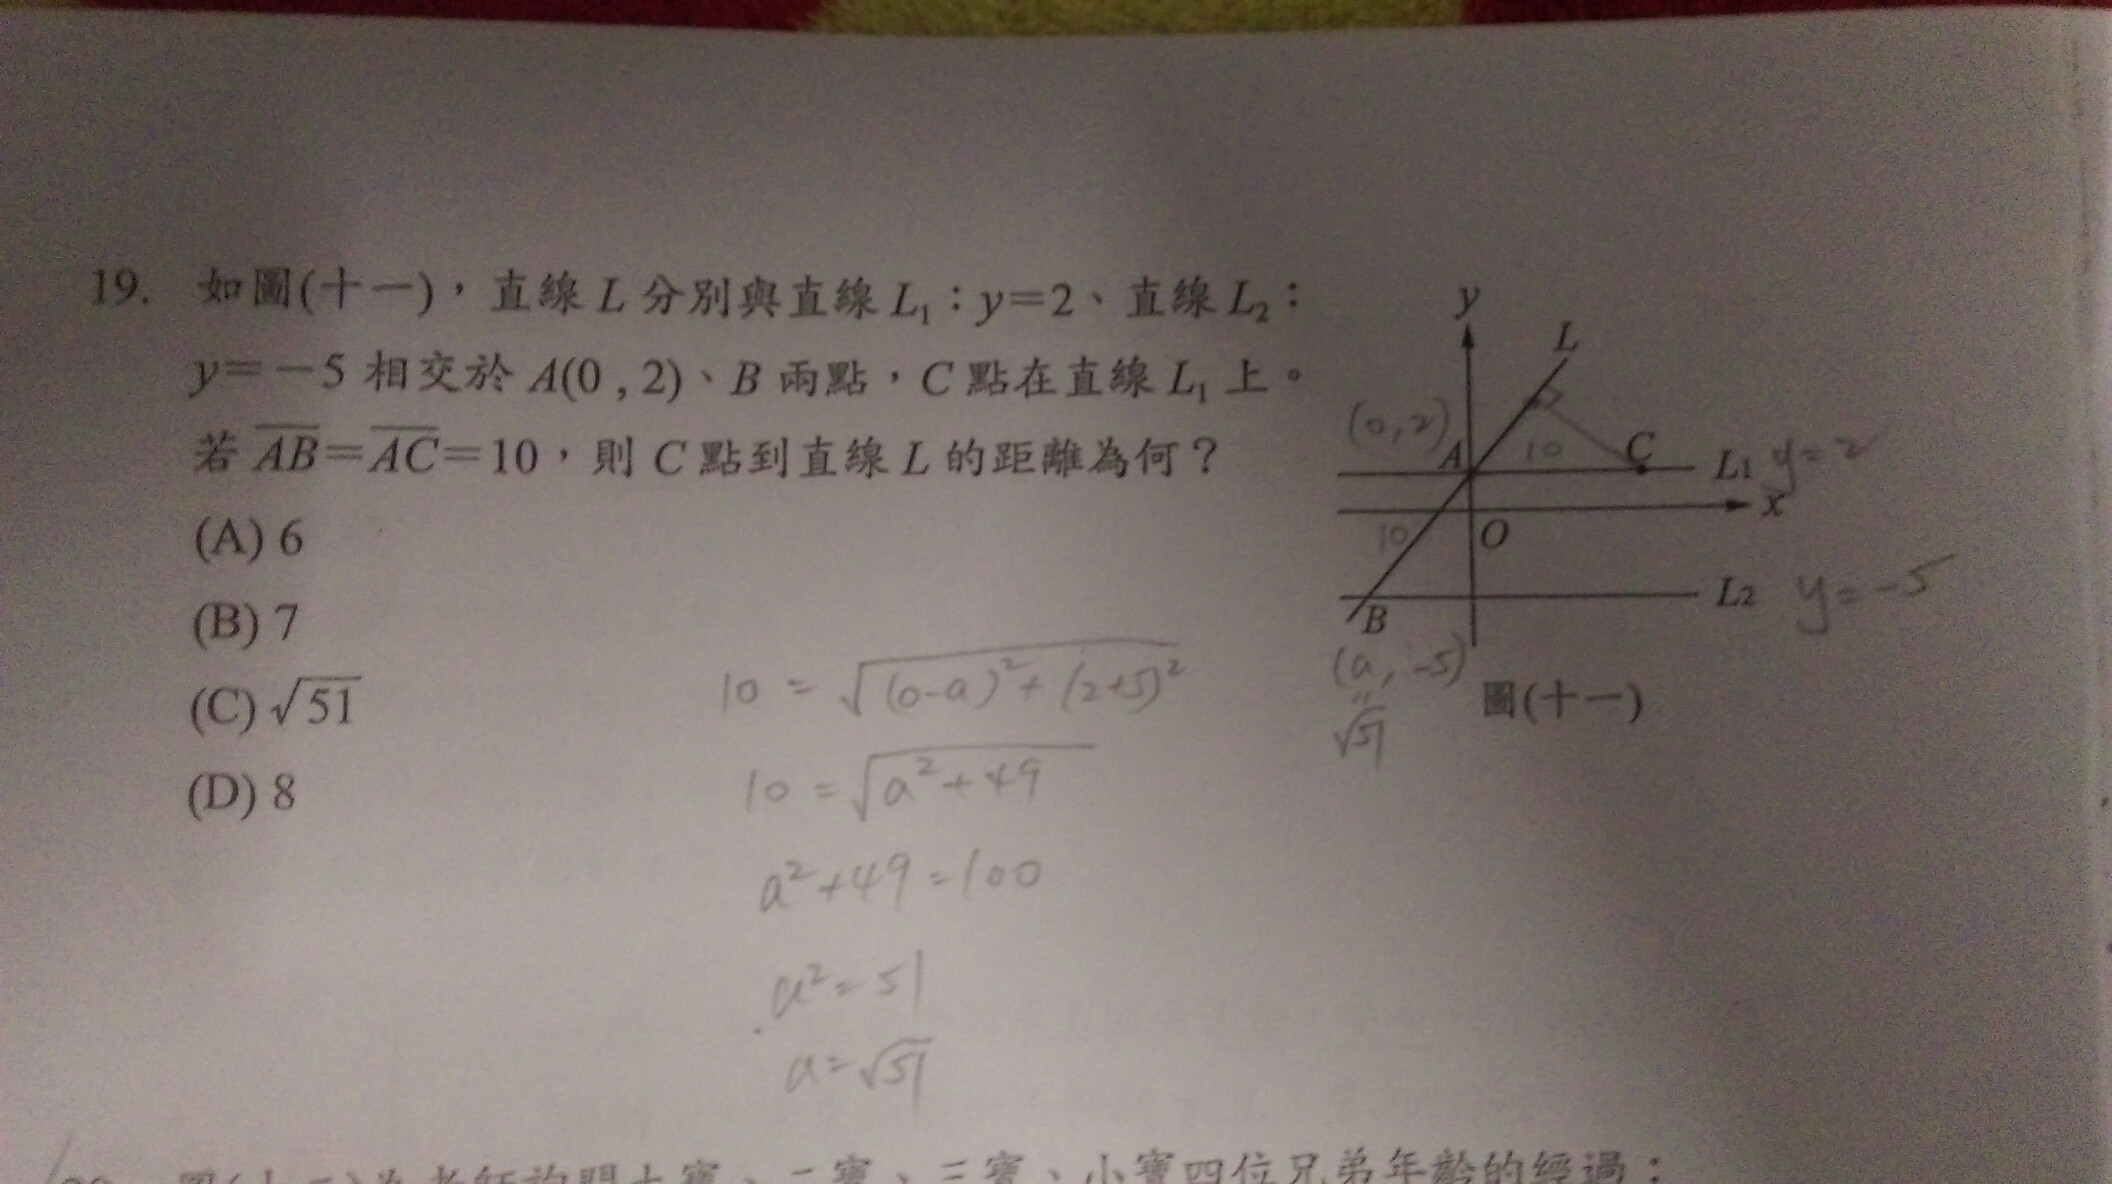 19. 如圖(十一)，直線 L 分別與直線 L₁：y=2、直線 L₂：
y=−5 相交於 A(0 , 2)、B 兩點，C 點在直線 L₁ 上。
若 A̅B̅=A̅C̅=10，則 C 點到直線 L 的距離為何？
(A) 6
(B) 7
(C) √51
(D) 8
y
L
(0,2)
A
10
C
L1 y=2
x
10
O
B
L2 y=-5
(a, -5)
"
√51
圖(十一)
10 = √(0-a)²+(2+5)²
10 = √a²+49
a²+49=100
a²=51
a=√51
、二寶、三寶、小寶四位兄弟年齡的經過：